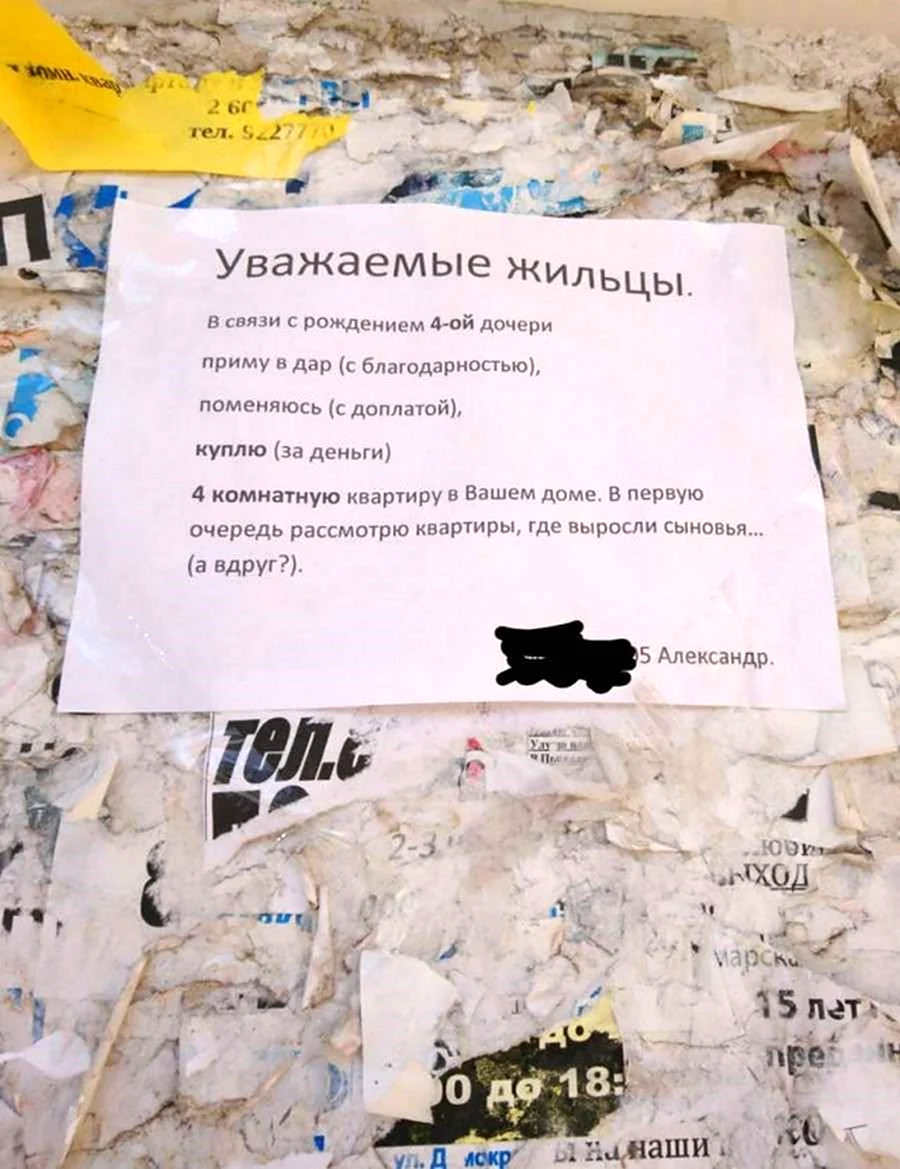 2 6
тел.
Уважаемые жильцы.
В связи с рождением 4-ой дочери
приму в дар (с благодарностью),
поменяюсь (с доплатой),
куплю (за деньги)
4 комнатную квартиру в Вашем доме. В первую
очередь рассмотрю квартиры, где выросли сыновья...
(а вдруг?).
5 Александр.
тел.
2-3
ЫХОД
15 лет
до
00 до 18:
на наши
ул. Д